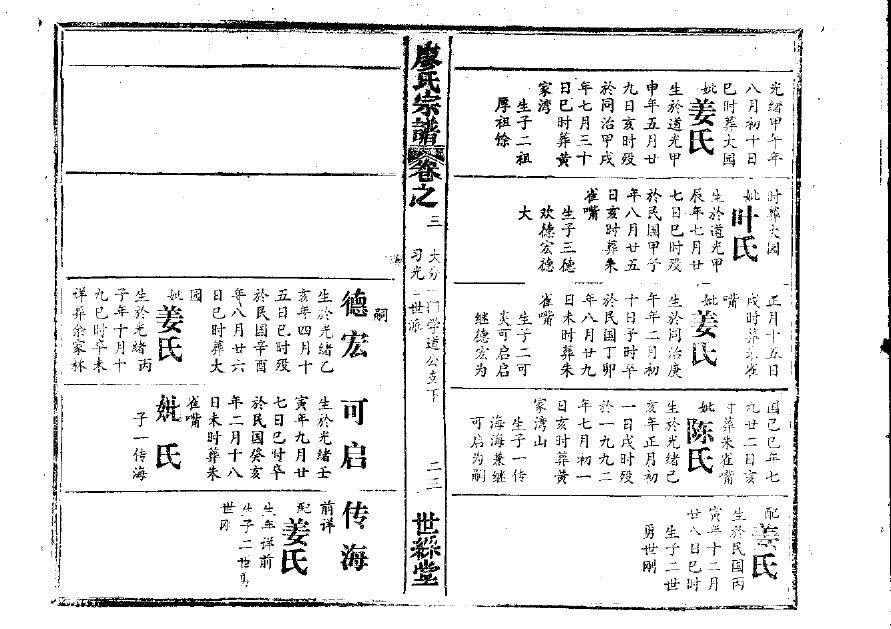 光绪甲午年
八月初十日
巳时葬大园
妣姜氏
生於道光甲
申年五月廿
九日亥时殁
於同治甲戌
年七月三十
日巳时葬黄
家湾
生子二祖
厚祖馀
时葬大园
妣叶氏
生於道光甲
辰年七月廿
七日巳时殁
於民国甲子
年八月廿五
日亥时葬朱
雀嘴
生子三德
欢德宏德
大
正月十五日
戌时葬朱雀
嘴
妣姜氏
生於同治庚
午年二月初
十日子时卒
於民国丁卯
年八月廿九
日未时葬朱
雀嘴
生子二可
炎可启启
继德宏为
国己巳年七
九廿二日亥
时葬朱雀嘴
妣陈氏
生於光绪己
亥年正月初
一日戌时殁
於一九九二
年七月初一
日亥时葬黄
家湾山
生子一传
海海兼继
可启为嗣
配姜氏
生於民国丙
寅年十二月
廿八日巳时
生子二世
勇世刚
廖氏宗谱卷之三
大分一门学道公支下
习光二世派
二三
世綵堂
嗣
德宏
生於光绪乙
亥年四月十
五日巳时殁
於民国辛酉
年八月廿六
日巳时葬大
园
妣姜氏
生於光绪丙
子年十月十
九巳时卒未
详葬余家林
可启
生於光绪壬
寅年九月廿
七日巳时卒
於民国癸亥
年二月十八
日未时葬朱
雀嘴
妣氏
子一传海
传海
前详
配姜氏
生年详前
生子二世勇
世刚